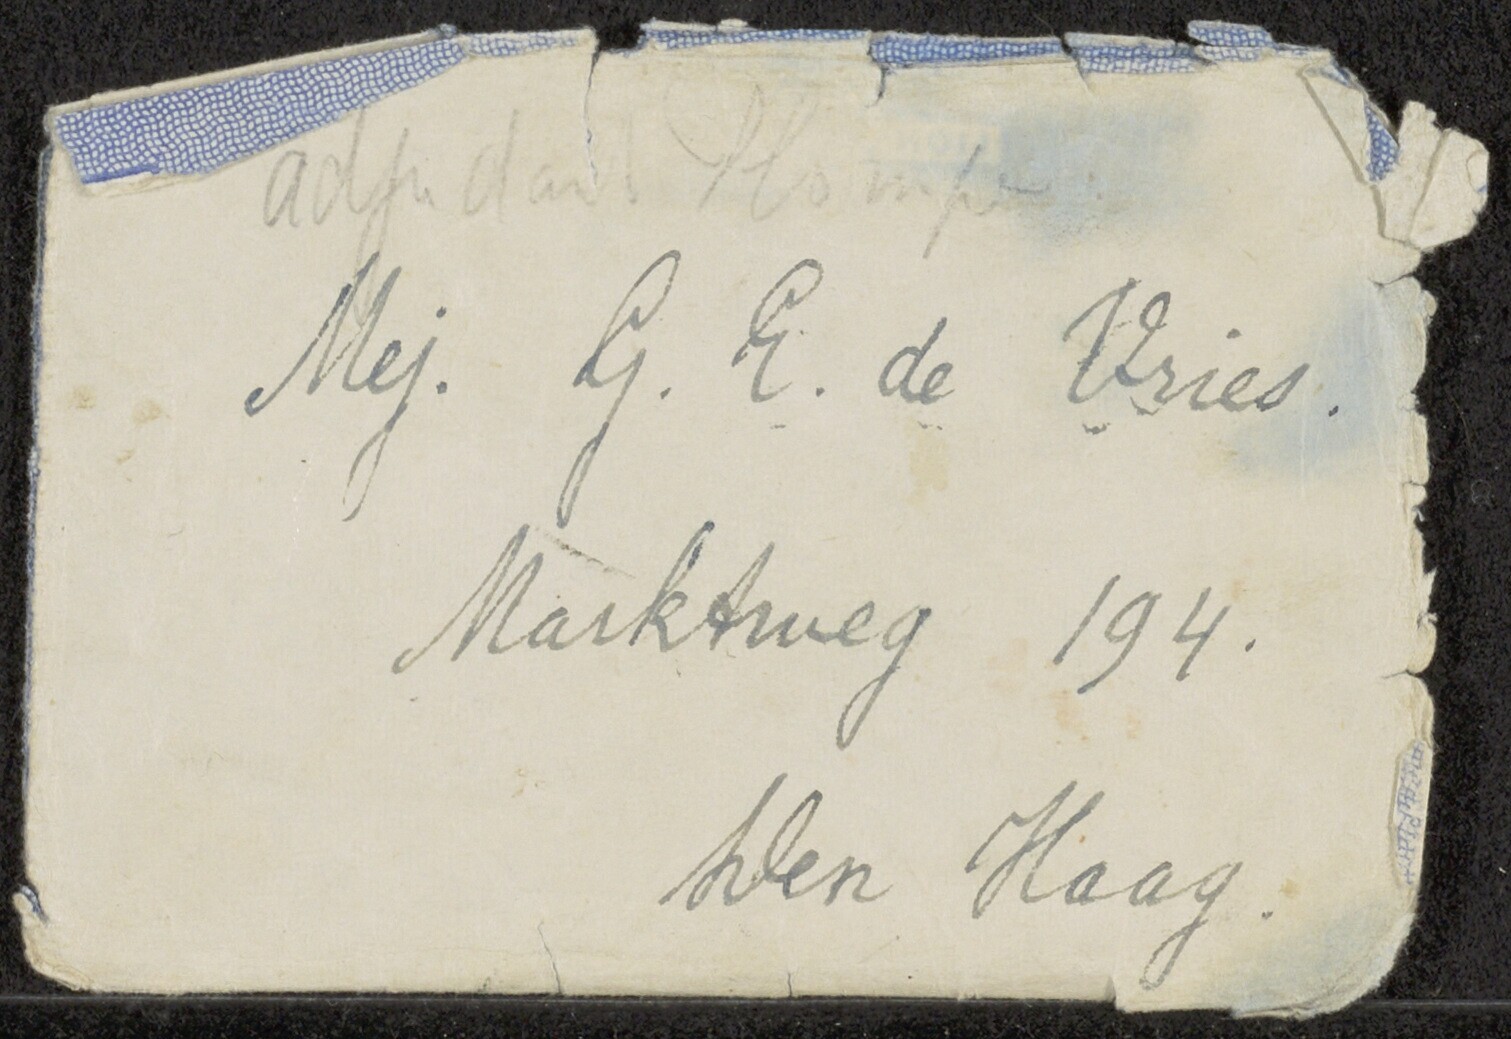 adjudant
Mej. G. E. de Vries.
Marktweg 194.
Den Haag.